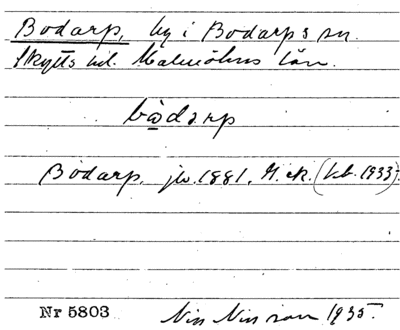 Bodarp, by i Bodarps sn.
Skytts hd. Malmöhus län.
bòdarp
Bodarp, jw. 1881, G. ek. (kb. 1933).
Nr 5803 Nils Nilsson 1935.